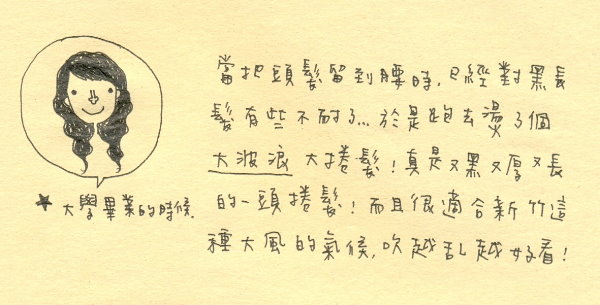 當把頭髮留到腰時,已經對黑長
髮有些不耐了...於是跑去燙了個
大波浪大捲髮!真是又黑又厚又長
的一頭捲髮!而且很適合新竹這
種大風的氣候,吹越乱越好看!
★大學畢業的時候